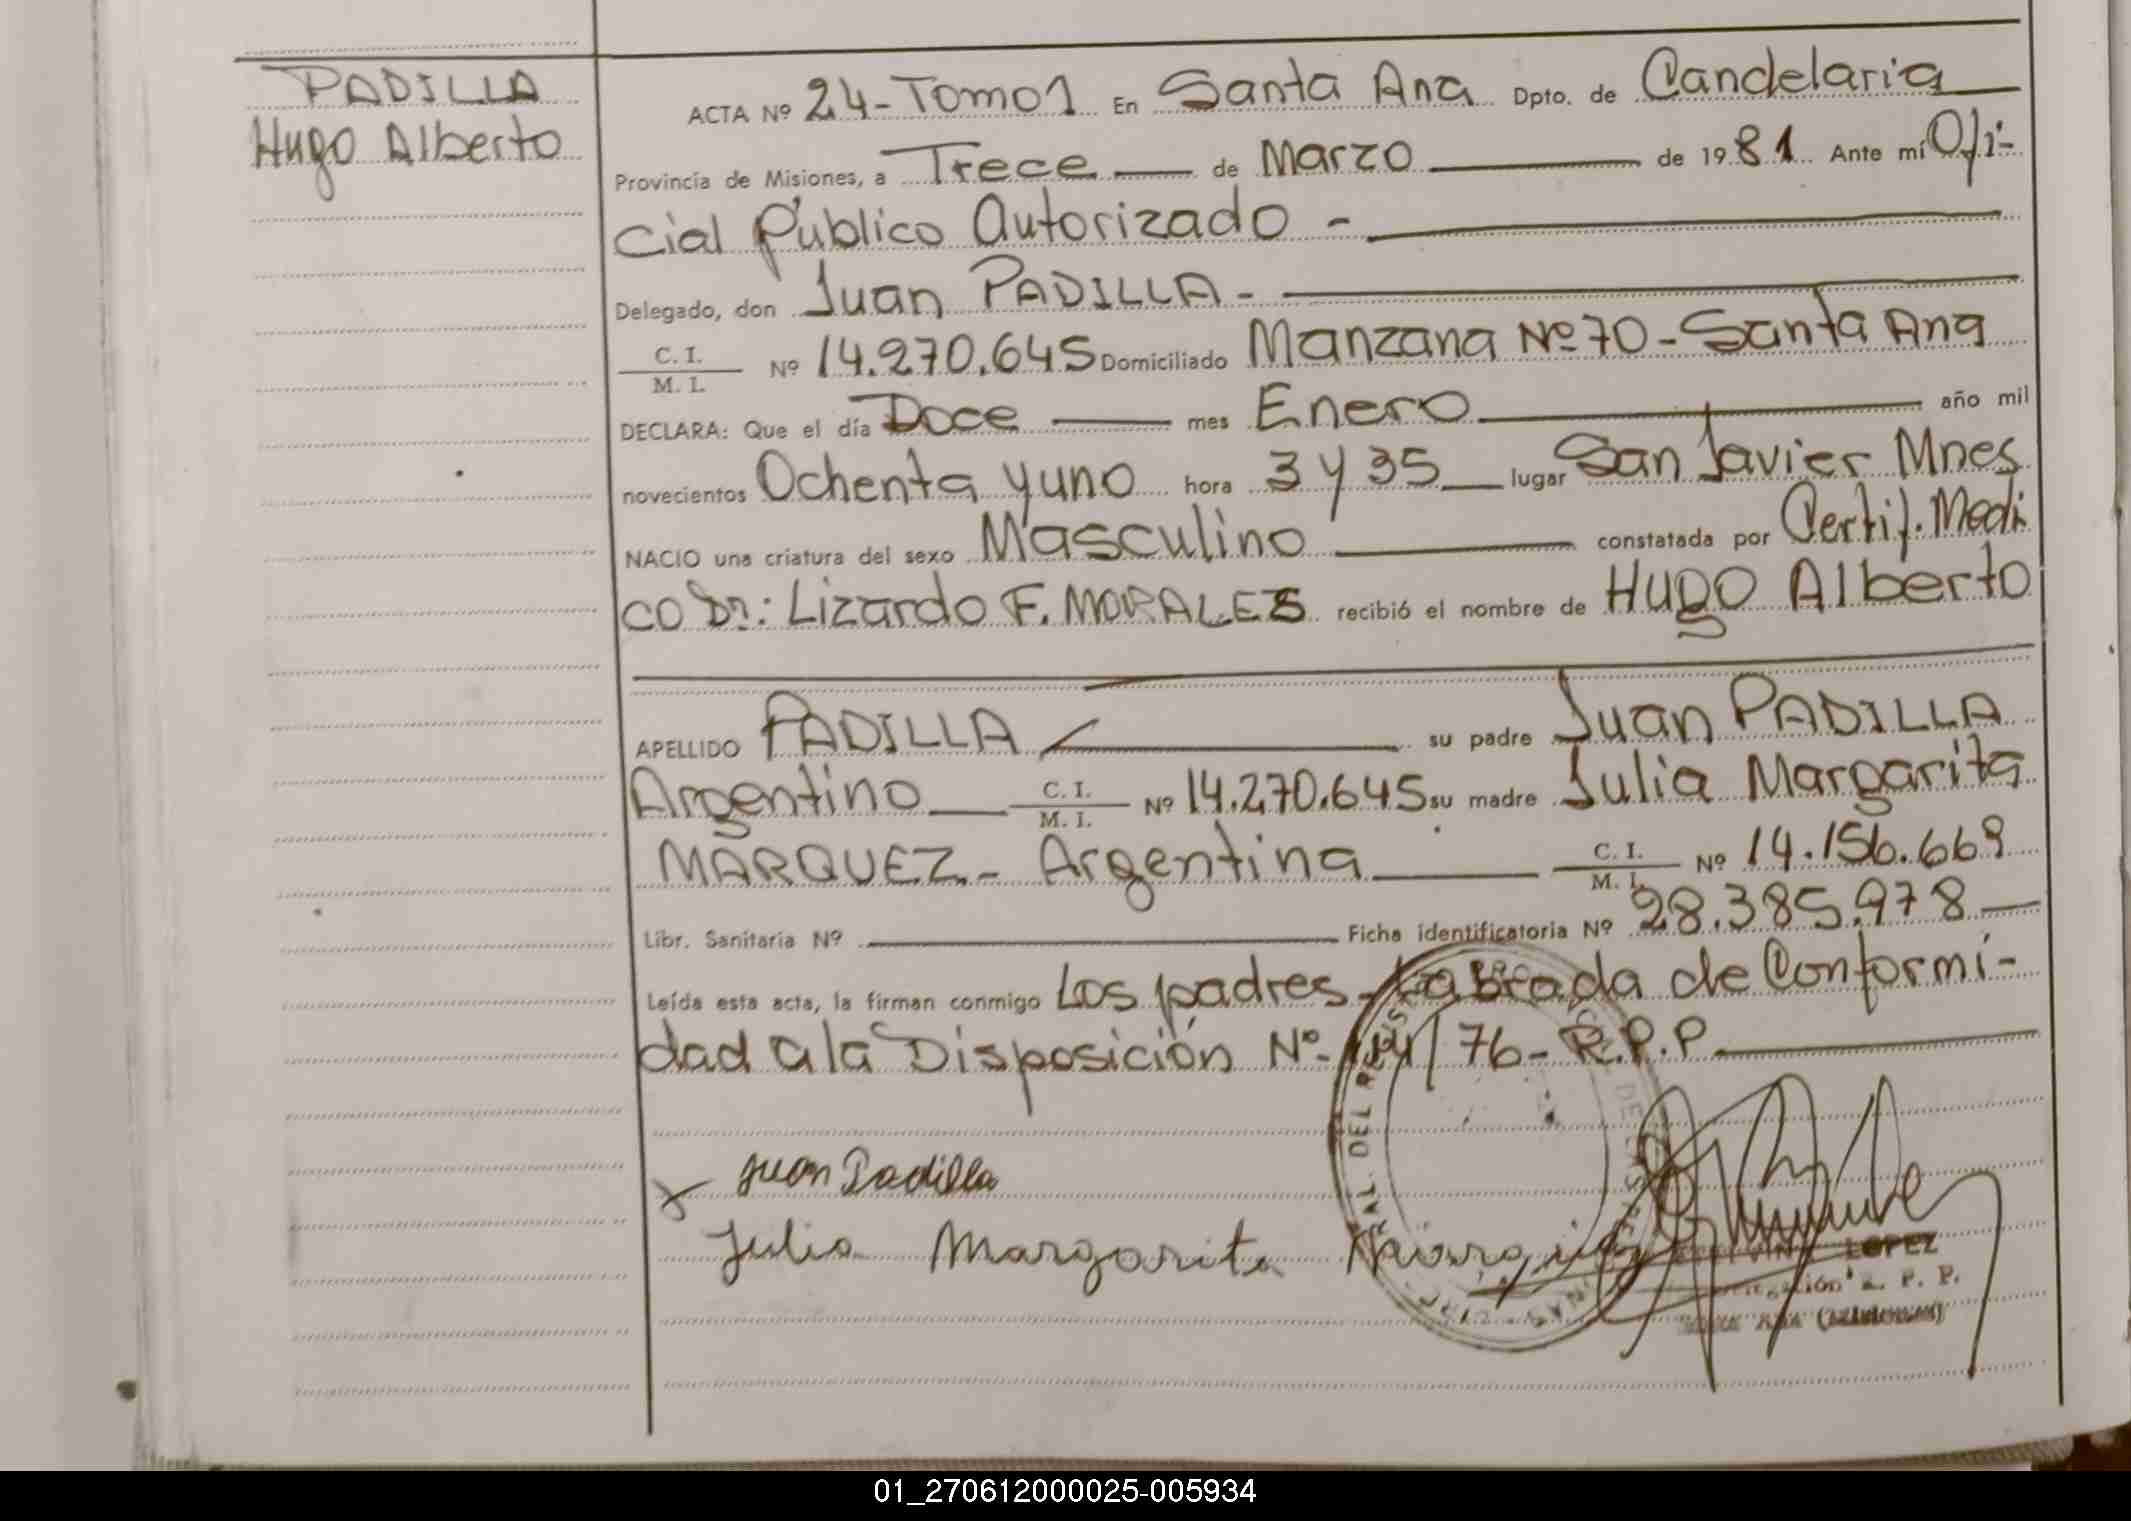 PADILLA
Hugo Alberto
ACTA Nº 24-Tomo1 En Santa Ana Dpto. de Candelaria
Provincia de Misiones, a Trece de Marzo de 1981 Ante mí Ofi-
cial Público Autorizado -
Delegado, don Juan PADILLA -
C. I.
M. I. Nº 14.270.645 Domiciliado Manzana Nº 70 - Santa Ana
DECLARA: Que el día Doce mes Enero año mil
novecientos Ochenta y uno hora 3 y 35 lugar San Javier Mnes
NACIO una criatura del sexo Masculino constatada por Certif. Medi
co Dr.: Lizardo F. MORALES recibió el nombre de Hugo Alberto
APELLIDO PADILLA su padre Juan PADILLA
Argentino C. I.
M. I. Nº 14.270.645 su madre Julia Margarita
MARQUEZ - Argentina C. I.
M. I. Nº 14.156.669
Libr. Sanitaria Nº Ficha identificatoria Nº 28.385.978
Leída esta acta, la firman conmigo Los padres - Labrada de Conformi-
dad a la Disposición Nº 76 - R.P.P
Juan Padilla
Julia Margarita Marquez
LOPEZ
R. P. P.
01_270612000025-005934